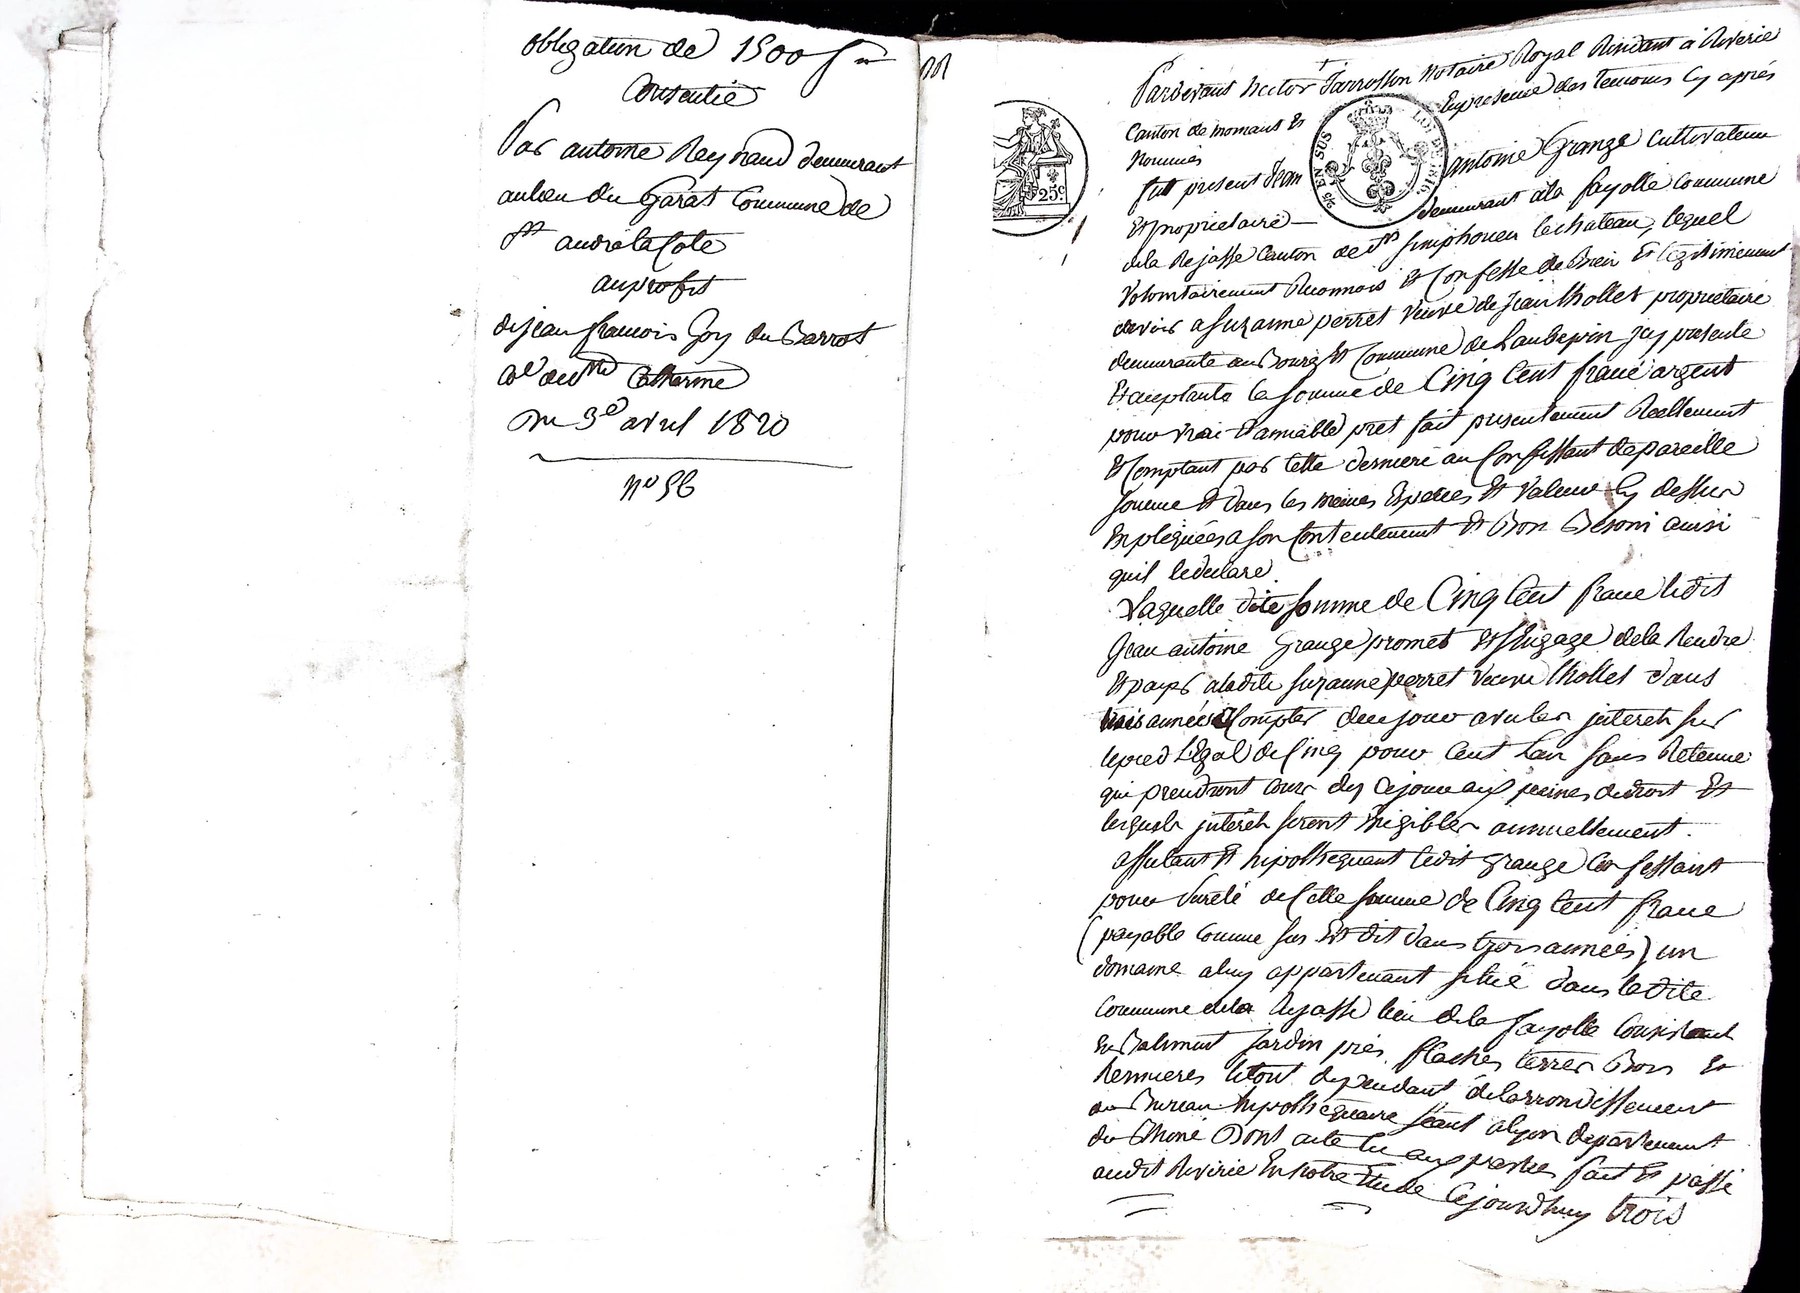 obligation de 1500 f
Consentie
Par antoine Reynaud demeurant
au lieu du Garat Commune de
St andré la Cote
au profit
de jean francois Goy du Barrot
Ce de Ste Catherine
Du 3e avril 1820
No 56
Pardevant hector Jarrosson Notaire Royal Résidant à Riverie
Canton de mornant Et En presence des temoins Cy après
Nommés
fut présent Jean antoine Grange Cultivateur
Et propriétaire demeurant à la fayolle Commune
de la Rejasse Canton de St Simphorien le chateau, lequel
Volontairement Reconnois Et Confesse de Bien Et légitimement
devoir a Suzanne perret Veuve de Jean thollet propriétaire
demeurante au Bourg Et Commune de Laubepin icy présente
Et acceptante la Somme de Cinq Cent franc argent
pour vrai & amiable pret fait présentement Réellement
Et Comptant par Cette derniere au Confessant de pareille
Somme Et dans les mêmes Espèces Et Valeur Cy dessus
Expliquées a son Contentement Et Bon Besoin ainsi
quil le déclare.
Laquelle dite Somme de Cinq Cent franc ledit
Jean antoine Grange promet Et Sengage de la Rendre
Et payer a ladite Suzanne perret Veuve thollet dans
trois années a Compter de ce jour avec les jnterets sur
le pied Légal de Cinq pour Cent Lan sans Retenue
qui prendront cours des Ce jour aux peines de droit Et
lesquels jnterets seront Exigibles annuellement.
affectant Et hipothequant ledit Grange Confessant
pour Sureté de Cette Somme de Cinq Cent franc
(payable Comme Sus Est dit dans trois années) un
domaine a luy appartenant situé dans ladite
Commune de la Rejasse lieu de la fayolle Consistant
En Batiment Jardin prés flaches terres Bois Et
hermieres le tout dependant de larrondissement
du Bureau hipothequaire séant a lyon departement
du Rhone Dont acte lu aux parties fait Et passé
audit Riverie En notre Etude Cejourdhuy trois
25c.
EN SUS
LOI DE 1816